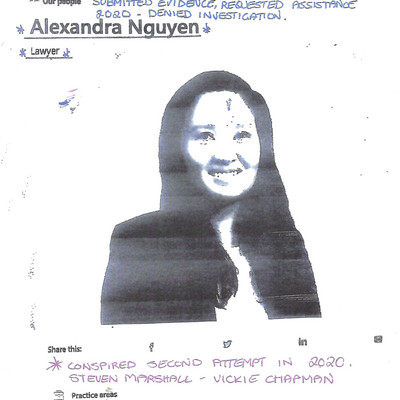 Our people SUBMITTED EVIDENCE, REQUESTED ASSISTANCE
2020 - DENIED INVESTIGATION.
* Alexandra Nguyen *
* Lawyer *
Share this: f in
* CONSPIRED SECOND ATTEMPT IN 2020.
STEVEN MARSHALL - VICKIE CHAPMAN
Practice areas